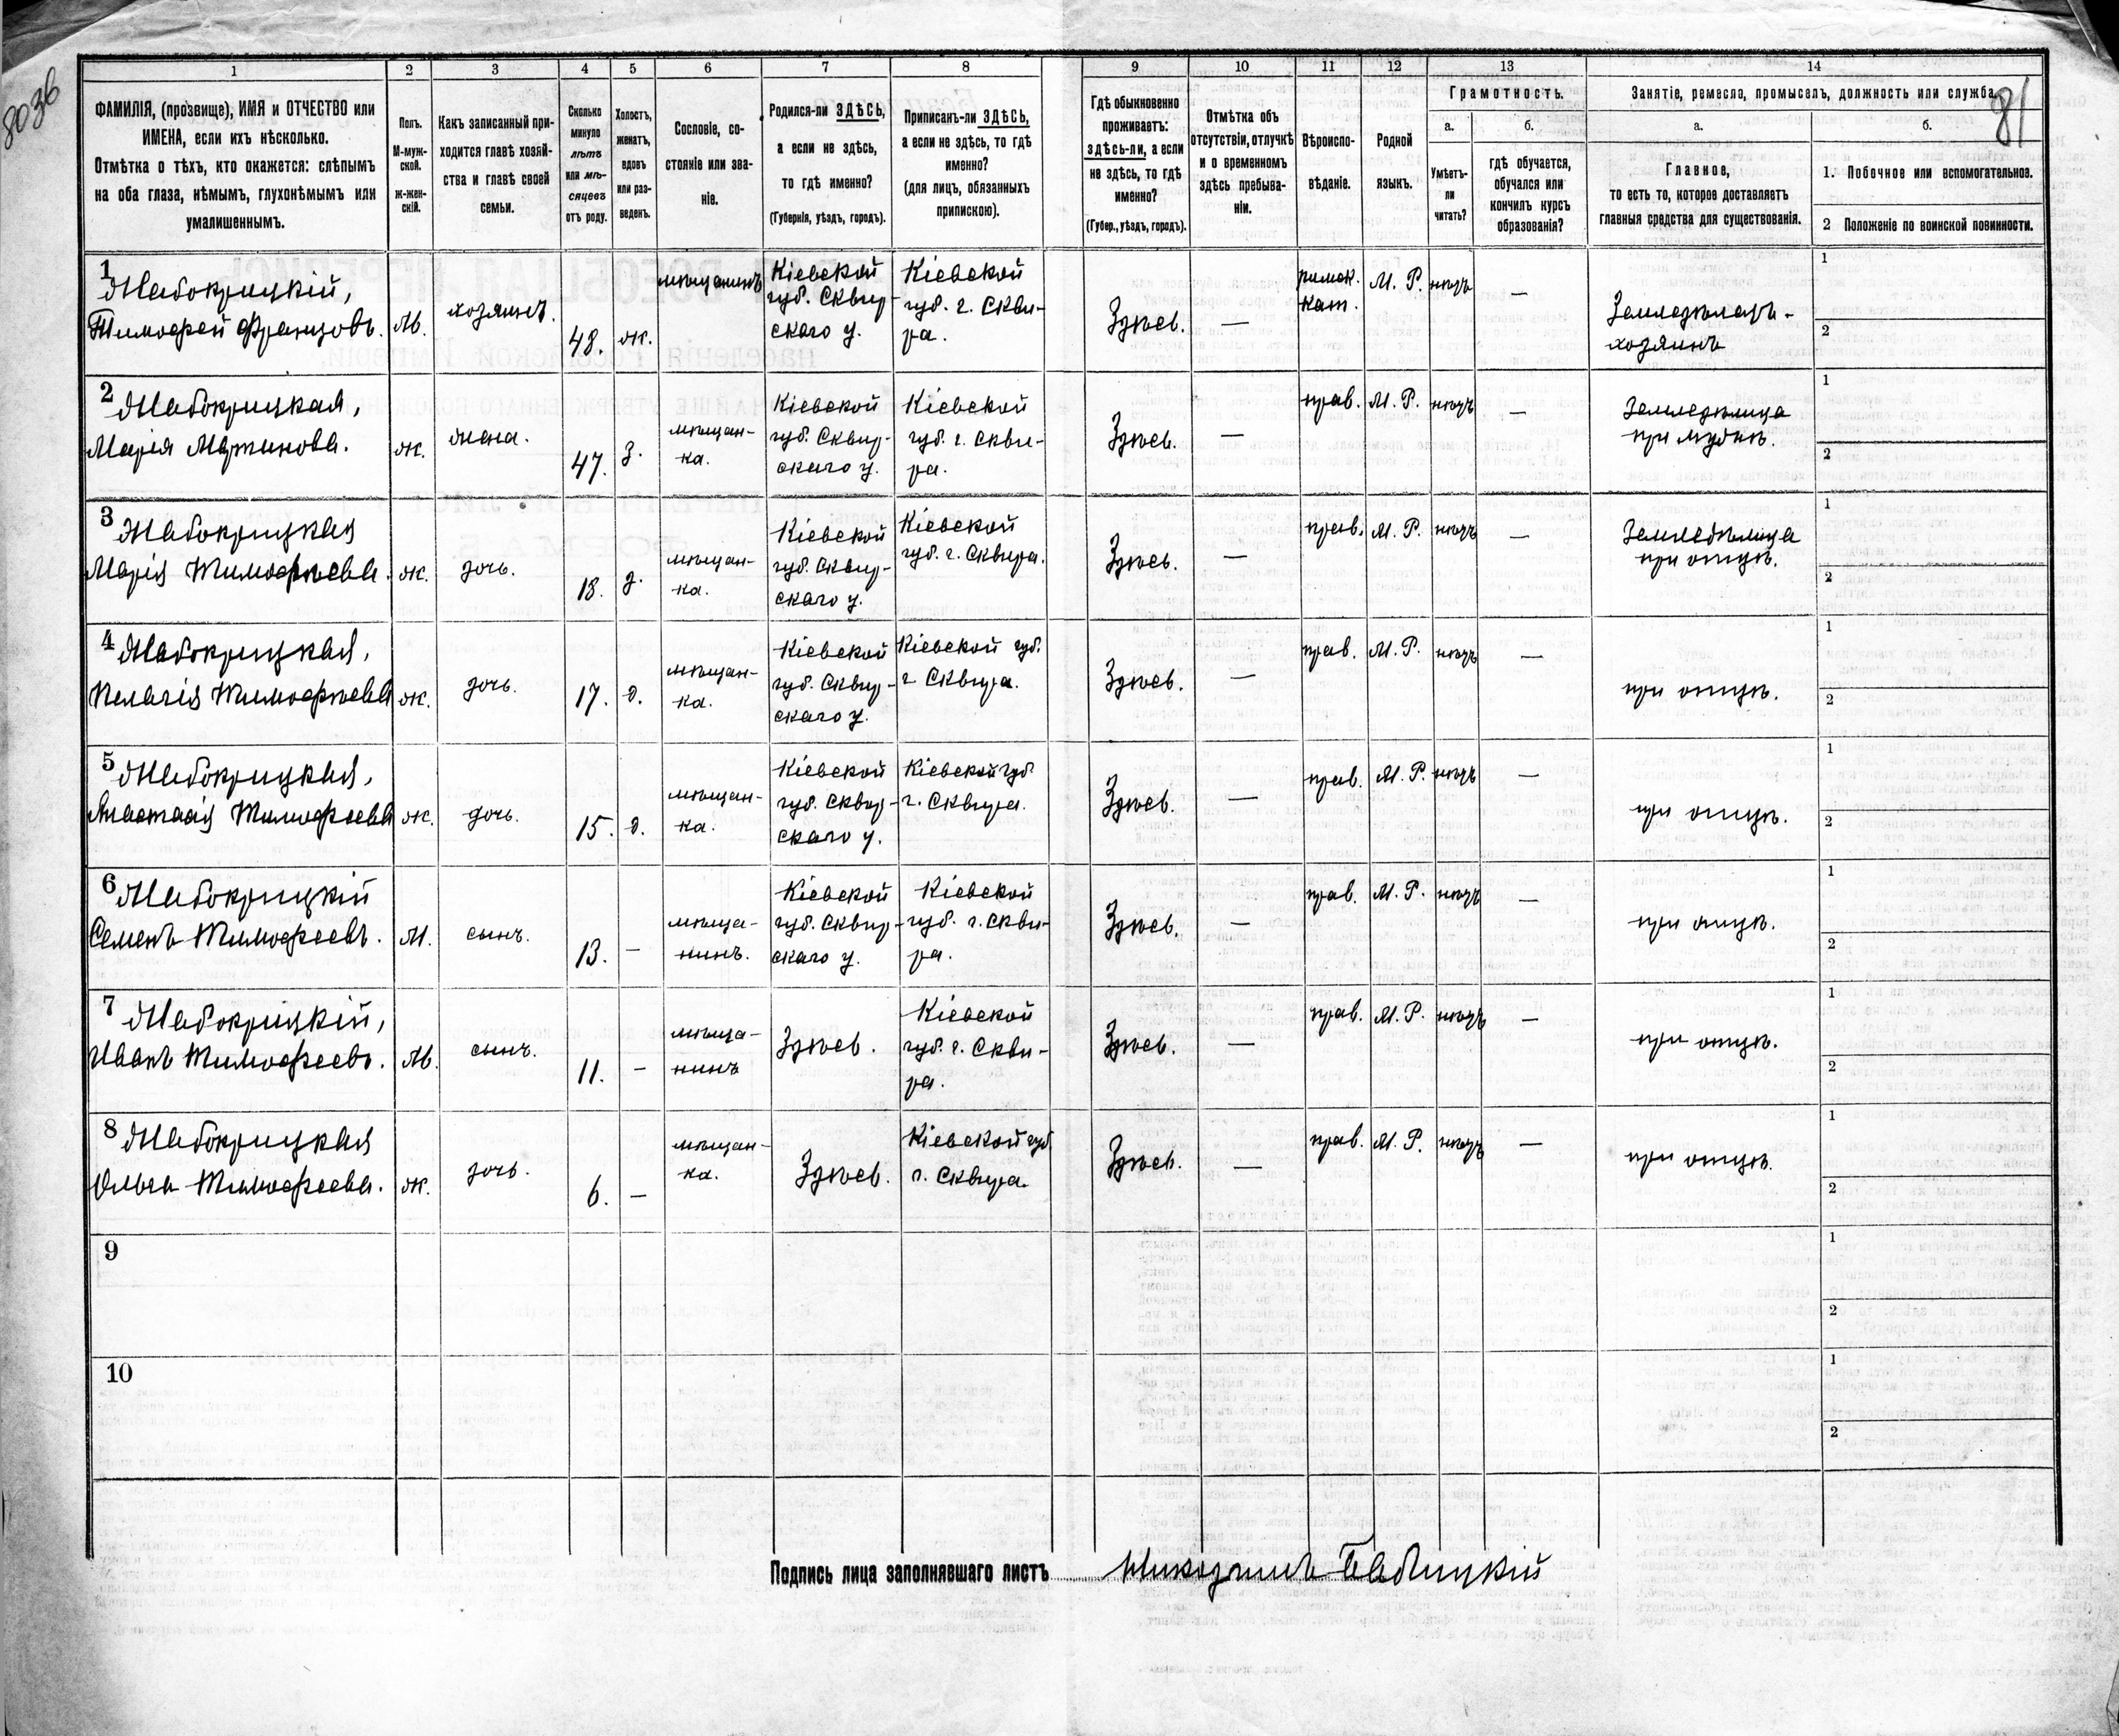 8036
81
1
2
3
4
5
6
7
8
9
10
11
12
13
14
ФАМИЛІЯ, (прозвище), ИМЯ и ОТЧЕСТВО или
ИМЕНА, если ихъ нѣсколько.
Отмѣтка о тѣхъ, кто окажется: слѣпымъ
на оба глаза, нѣмымъ, глухонѣмымъ или
умалишеннымъ.
Полъ.
М-муж-
ской.
ж-жен-
скій.
Какъ записанный при-
ходится главѣ хозяй-
ства и главѣ своей
семьи.
Сколько
минуло
лѣтъ
или мѣ-
сяцевъ
отъ роду.
Холостъ,
женатъ,
вдовъ
или раз-
веденъ.
Сословіе, со-
стояніе или зва-
ніе.
Родился-ли ЗДѢСЬ,
а если не здѣсь,
то гдѣ именно?
(Губернія, уѣздъ, городъ).
Приписанъ-ли ЗДѢСЬ,
а если не здѣсь, то гдѣ
именно?
(для лицъ, обязанныхъ
припискою).
Гдѣ обыкновенно
проживаетъ:
здѣсь-ли, а если
не здѣсь, то гдѣ
именно?
(Губер., уѣздъ, городъ).
Отмѣтка объ
отсутствіи, отлучкѣ
и о временномъ
здѣсь пребыва-
ніи.
Вѣроиспо-
вѣданіе.
Родной
языкъ.
Грамотность.
а.
Умѣетъ-
ли
читать?
б.
гдѣ обучается,
обучался или
кончилъ курсъ
образованія?
Занятіе, ремесло, промыселъ, должность или служба.
а.
Главное,
то есть то, которое доставляетъ
главныя средства для существованія.
б.
1. Побочное или вспомогательное.
2 Положеніе по воинской повинности.
1
Жабокрицкій,
Тимофей Францовъ.
М.
хозяинъ.
48.
ж.
мѣщанинъ
Кіевской
губ. Сквир-
скаго у.
Кіевской
губ. г. Скви-
ра.
Здѣсь.
—
римск.
кат.
М. Р.
нѣтъ
—
Земледѣлецъ-
хозяинъ
1
2
2
Жабокрицкая,
Марія Мартинова.
ж.
жена.
47.
з.
мѣщан-
ка.
Кіевской
губ. Сквир-
скаго у.
Кіевской
губ. г. Скви-
ра.
Здѣсь.
—
прав.
М. Р.
нѣтъ
—
Земледѣлица
при мужѣ.
1
2
3
Жабокрицкая
Марія Тимофѣева.
ж.
дочь.
18.
д.
мѣщан-
ка.
Кіевской
губ. Сквир-
скаго у.
Кіевской
губ. г. Сквира.
Здѣсь.
—
прав.
М. Р.
нѣтъ
—
Земледѣлица
при отцѣ.
1
2
4
Жабокрицкая,
Пелагія Тимофѣева
ж.
дочь.
17.
д.
мѣщан-
ка.
Кіевской
губ. Сквир-
скаго у.
Кіевской губ.
г Сквира.
Здѣсь.
—
прав.
М. Р.
нѣтъ
—
при отцѣ.
1
2
5
Жабокрицкая,
Анастасія Тимофеева
ж.
дочь.
15.
д.
мѣщан-
ка.
Кіевской
губ. Сквир-
скаго у.
Кіевской губ
г. Сквира.
Здѣсь.
—
прав.
М. Р.
нѣтъ
—
при отцѣ.
1
2
6
Жабокрицкій
Семенъ Тимофеевъ.
М.
сынъ.
13.
–
мѣща-
нинъ.
Кіевской
губ. Сквир-
скаго у.
Кіевской
губ. г. Скви-
ра.
Здѣсь.
—
прав.
М. Р.
нѣтъ
—
при отцѣ.
1
2
7
Жабокрицкій,
Иванъ Тимофеевъ.
М.
сынъ.
11.
–
мѣща-
нинъ
Здѣсь.
Кіевской
губ. г. Скви-
ра.
Здѣсь.
—
прав.
М. Р.
нѣтъ
—
при отцѣ.
1
2
8
Жабокрицкая
Ольга Тимофеева.
ж.
дочь.
6.
–
мѣщан-
ка.
Здѣсь.
Кіевской губ
г. Сквира.
Здѣсь.
—
прав.
М. Р.
нѣтъ
—
при отцѣ.
1
2
9
1
2
10
1
2
Подпись лица заполнявшаго листъ Никодимъ Бабицкій